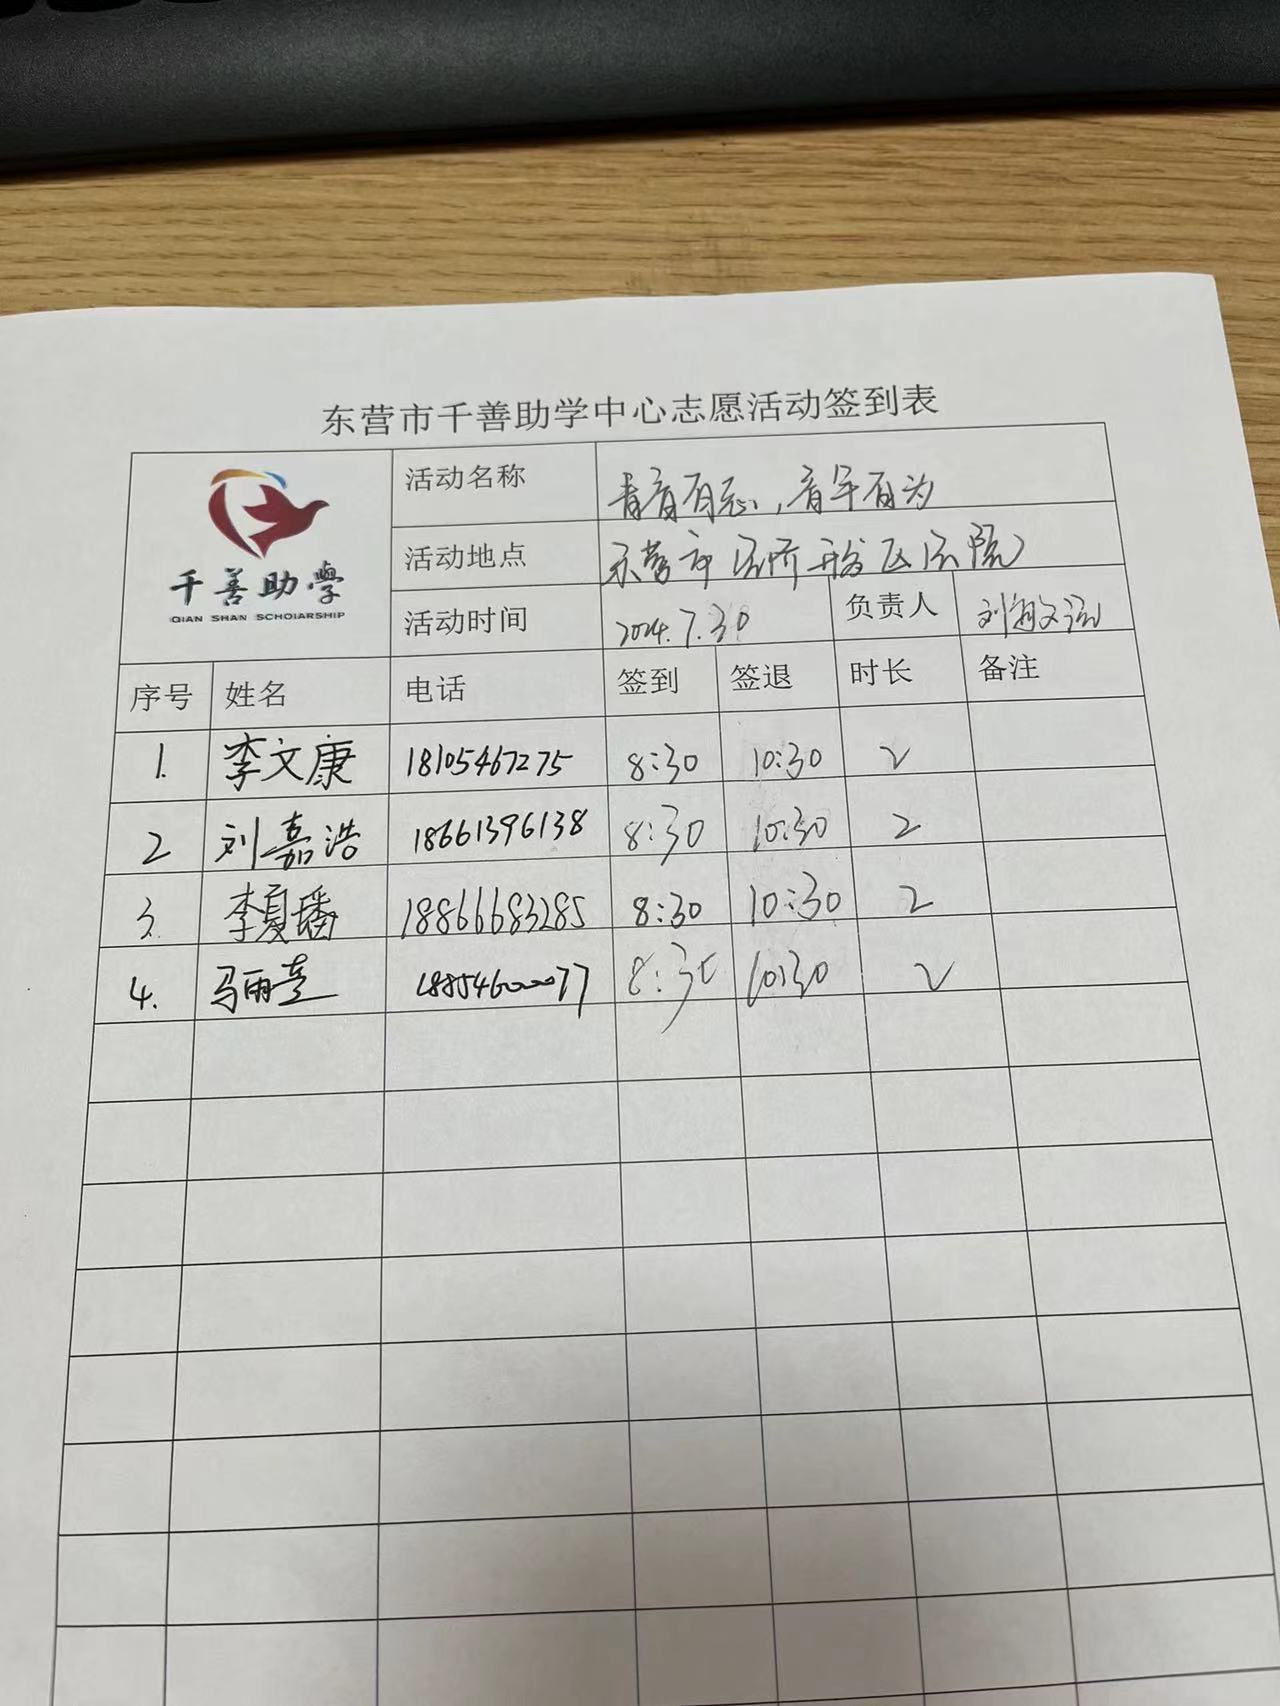 东营市千善助学中心志愿活动签到表
千善助學
QIAN SHAN SCHOIARSHIP
活动名称 青春有志，青年有为
活动地点 东营市经济开发区法院
活动时间 2024.7.30 负责人 刘
序号 姓名 电话 签到 签退 时长 备注
1. 李文康 18105467275 8:30 10:30 2
2 刘嘉浩 18661396138 8:30 10:30 2
3. 李夏璠 18866683285 8:30 10:30 2
4. 马雨 18854600077 8:30 10:30 2